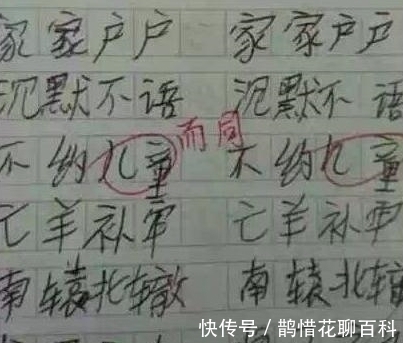 家家户户 家家户户
沉默不语 沉默不语
不约儿童 而同 不约儿童
亡羊补牢 亡羊补牢
南辕北辙 南辕北辙
快传号/鹊惜花聊百科